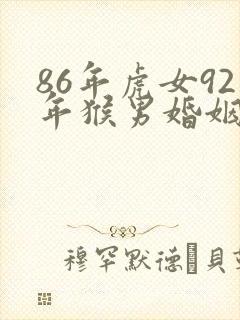 86年虎女92
年猴男婚姻
穆罕默德·貝